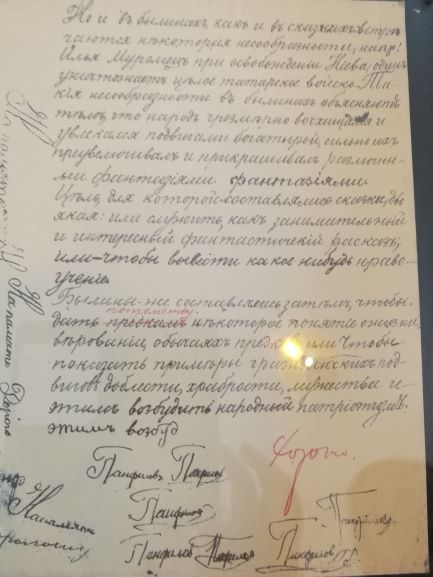 Но и въ былинахъ, какъ и въ сказкахъ встрѣ
чаются нѣкоторыя несообразности, напр:
Илья Муромецъ при освобожденіи Кіева, одинъ
уничтожаетъ цѣлое татарское войско. Та
кія несообразности въ былинахъ объясняются
тѣмъ, что народъ чрезмѣрно восхищаясь и
увлекаясь подвигами богатырей, сильно ихъ
преувеличивалъ и прикрашивалъ
фантазіями. фантазіями.
Цѣль, для которой составлялись сказки, дво
якая: или служить, какъ занимательный
и интересный фантастическій расказъ,
или чтобы вывѣсти какое нибудь нраво-
ученіе.
Былины же составлялись затѣмъ, чтобы
потомству
дать предкамъ нѣкоторое понятіе о жизни,
вѣрованіи, обычаяхъ предковъ, или чтобы
показать примѣры гражданскихъ под-
виговъ доблести, храбрости, мужества и
этимъ возбудить народный патріотизмъ.
этимъ возбуд
Хорошо.
Панфиловъ Панфиловъ
Панфиловъ
Панфиловъ Панфиловъ Панфиловъ
На память
На память